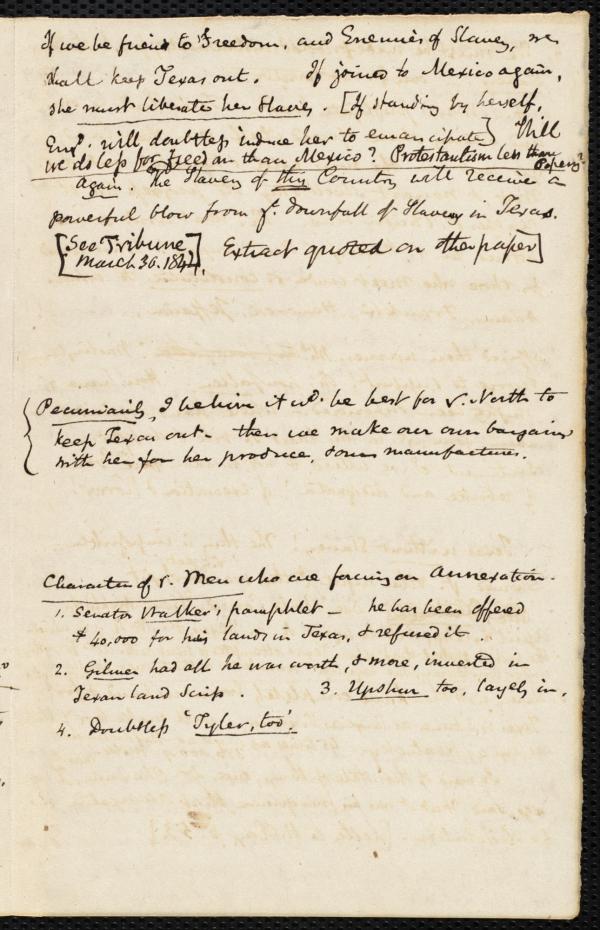 If we be friends to Freedom, and Enemies of Slavery, we
shall keep Texas out. If joined to Mexico again,
she must liberate her Slaves. [If standing by herself,
Engd. will doubtless induce her to emancipate] Will
we do less for freedom than Mexico? Protestantism less than Popery?
Again. The Slavery of this Country will receive a
powerful blow from ye. downfall of Slavery in Texas.
[See Tribune March 30. 1844. Extract quoted on other paper]
Pecuniarily, I believe it wd. be best for ye. North to
keep Texas out - then we make our own bargains
with her for her produce, & our manufactures.
Character of ye. Men who are forcing on Annexation.
1. Senator Walker's pamphlet - he has been offered
$40,000 for his lands in Texas, & refused it.
2. Gilmer had all he was worth, & more, invested in
Texan land Scrip. 3. Upshur too, largely in.
4. Doubtless 'Tyler, too'.